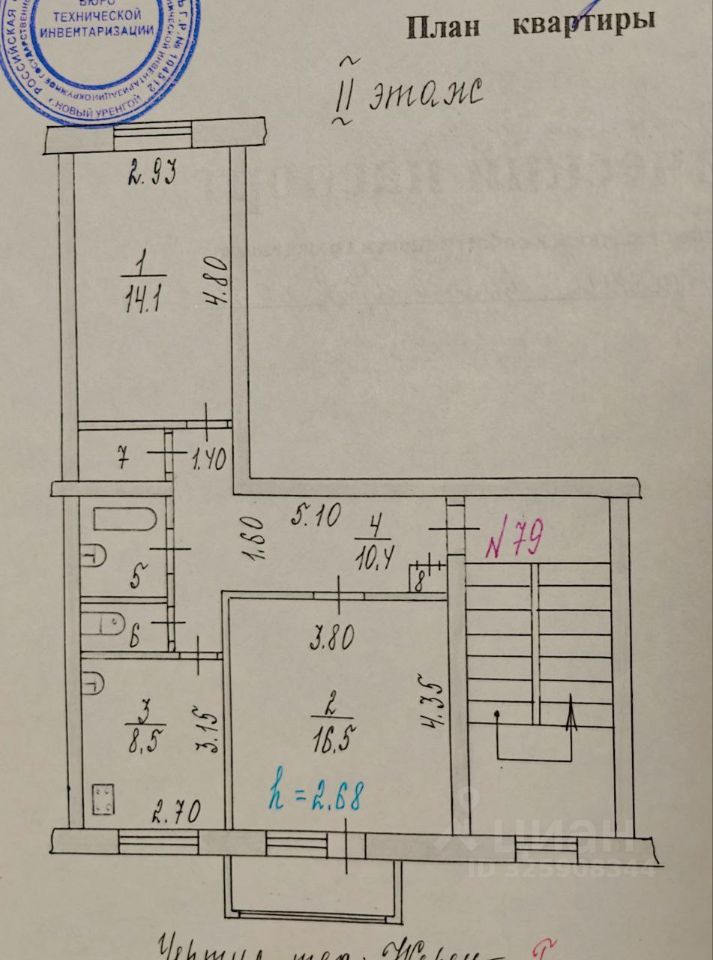 БЮРО
ТЕХНИЧЕСКОЙ
ИНВЕНТАРИЗАЦИИ
г. НОВЫЙ УРЕНГОЙ
План квартиры
II этаж
2.93
1
14.1
4.80
7
1.40
5.10
4
10.4
N 79
1.60
5
8
6
3.80
3
8.5
3.15
2
16.5
4.35
h = 2.68
2.70
ЦИАН
ID 325908344